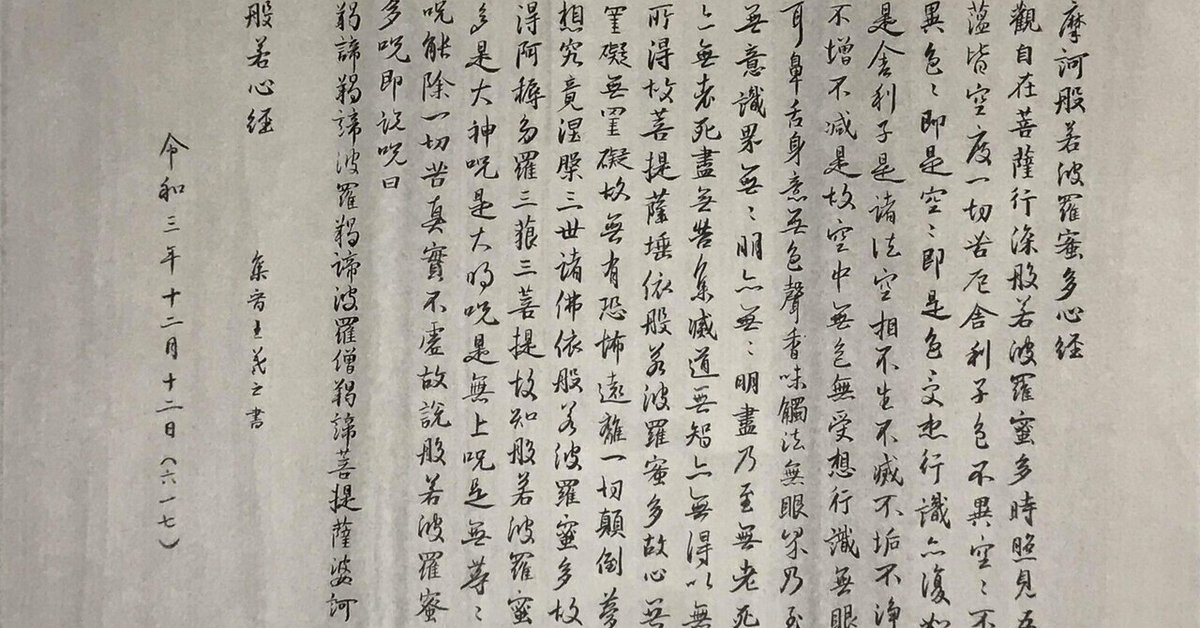 摩訶般若波羅蜜多心経
觀自在菩薩行深般若波羅蜜多時照見五
蘊皆空度一切苦厄舎利子色不異空〻不
異色〻即是空〻即是色受想行識亦復如
是舎利子是諸法空相不生不滅不垢不浄
不増不減是故空中無色無受想行識無眼
耳鼻舌身意無色聲香味觸法無眼界乃至
無意識界無〻明亦無〻明盡乃至無老死
亦無老死盡無苦集滅道無智亦無得以無
所得故菩提薩埵依般若波羅蜜多故心無
罣礙無罣礙故無有恐怖遠離一切顛倒夢
想究竟涅槃三世諸佛依般若波羅蜜多故
得阿耨多羅三藐三菩提故知般若波羅蜜
多是大神呪是大明呪是無上呪是無等〻
呪能除一切苦真實不虚故説般若波羅蜜
多呪即説呪曰
羯諦羯諦波羅羯諦波羅僧羯諦菩提薩婆訶
般若心経
集字王羲之書
令和三年十二月十二日(六一七)